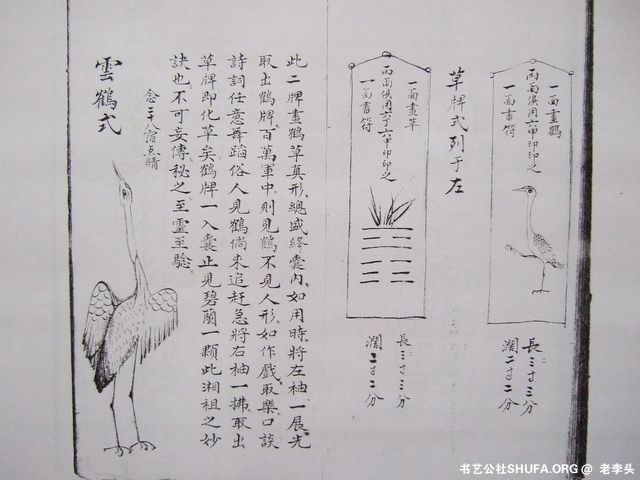 一面畫鶴
兩面俱用六甲印印之
一面書符
長三寸三分
濶二寸二分
草牌式列于左
一面畫草
兩面俱用六丁六甲印印之
一面書符
長三寸三分
濶二寸二分
此二牌畫鶴草真形總盛絳囊内如用時將左袖一展先
取出鶴牌百萬軍中則見鶴不見人形如作戲取樂口談
詩詞任意舞蹈俗人見鶴倘来追赶急將右袖一拂取出
草牌即化草矣鶴牌一入囊止見碧蘭一顆此湘祖之妙
訣也不可妄傳秘之至靈至驗
念二十八宿点睛
雲鶴式
书艺公社SHUFA.ORG @ 老李头